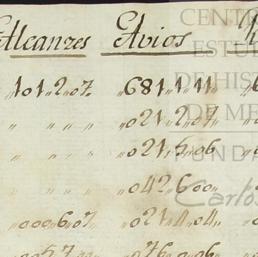 Alcanzes Avios
"101"2"07 "681"1"11
" " " "021"2"07
" " " "021"5"06
" " " "042"6"00
"000"6"07 "021"4"04
CENT
ESTU
DE HIS
DE ME
FUNDA
Carlos